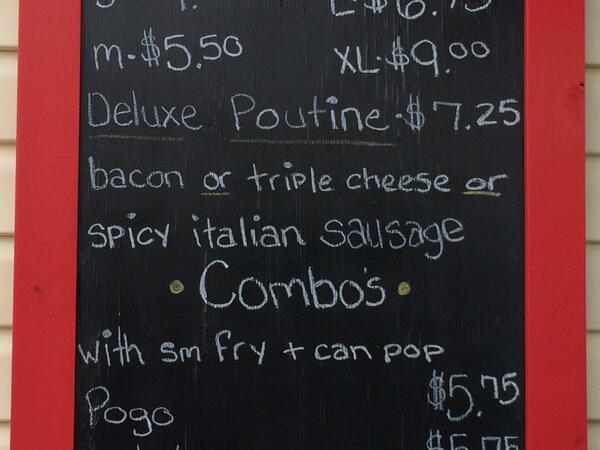 L-$6.75
m-$5.50 XL-$9.00
Deluxe Poutine-$7.25
bacon or triple cheese or
spicy italian sausage
• Combo's •
with sm fry + can pop
Pogo $5.75
$5.75